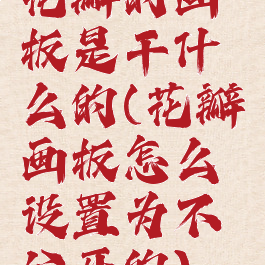 花瓣的画
板是干什
么的(花瓣
画板怎么
设置为不
公开的)